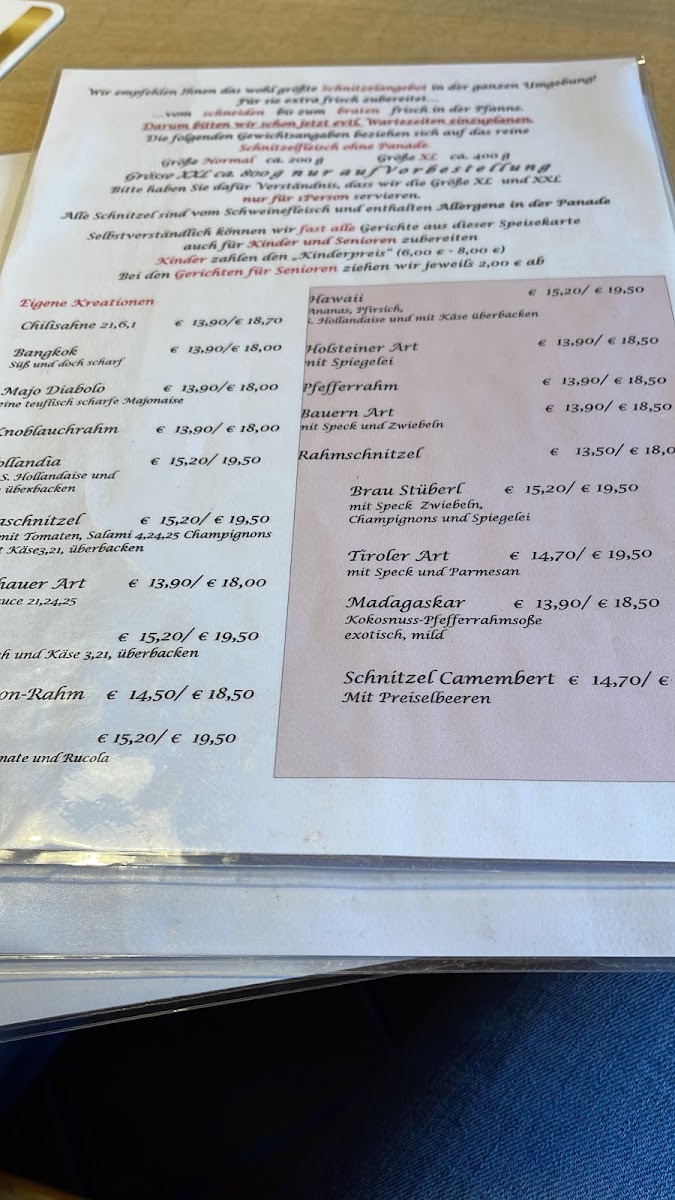 Wir empfehlen Ihnen das wohl größte Schnitzelangebot in der ganzen Umgebung!
Für sie extra frisch zubereitet...
...vom schneiden bis zum braten frisch in der Pfanne.
Darum bitten wir schon jetzt evtl. Wartezeiten einzuplanen.
Die folgenden Gewichtsangaben beziehen sich auf das reine
Schnitzelfleisch ohne Panade.
Größe Normal ca. 200 g Größe XL ca. 400 g
Grösse XXL ca. 800g nur auf Vorbestellung
Bitte haben Sie dafür Verständnis, dass wir die Größe XL und XXL
nur für 1Person servieren.
Alle Schnitzel sind vom Schweinefleisch und enthalten Allergene in der Panade
Selbstverständlich können wir fast alle Gerichte aus dieser Speisekarte
auch für Kinder und Senioren zubereiten
Kinder zahlen den „Kinderpreis" (6,00 € - 8,00 €)
Bei den Gerichten für Senioren ziehen wir jeweils 2,00 € ab
Eigene Kreationen
Chilisahne 21,6,1 € 13,90/€ 18,70
Bangkok € 13,90/€ 18,00
Süß und doch scharf
Majo Diabolo € 13,90/€ 18,00
eine teuflisch scharfe Majonaise
Knoblauchrahm € 13,90/€ 18,00
ollandia € 15,20/ 19,50
S. Hollandaise und
überbacken
aschnitzel € 15,20/ € 19,50
mit Tomaten, Salami 4,24,25 Champignons
t Käse3,21, überbacken
hauer Art € 13,90/ € 18,00
uce 21,24,25
€ 15,20/ € 19,50
h und Käse 3,21, überbacken
on-Rahm € 14,50/ € 18,50
€ 15,20/ € 19,50
mate und Rucola
Hawaii € 15,20/ € 19,50
Ananas, Pfirsich,
s. Hollandaise und mit Käse überbacken
Holsteiner Art € 13,90/ € 18,50
mit Spiegelei
Pfefferrahm € 13,90/ € 18,50
Bauern Art € 13,90/ € 18,50
mit Speck und Zwiebeln
Rahmschnitzel € 13,50/ € 18,0
Brau Stüberl € 15,20/ € 19,50
mit Speck Zwiebeln,
Champignons und Spiegelei
Tiroler Art € 14,70/ € 19,50
mit Speck und Parmesan
Madagaskar € 13,90/ € 18,50
Kokosnuss-Pfefferrahmsoße
exotisch, mild
Schnitzel Camembert € 14,70/ €
Mit Preiselbeeren